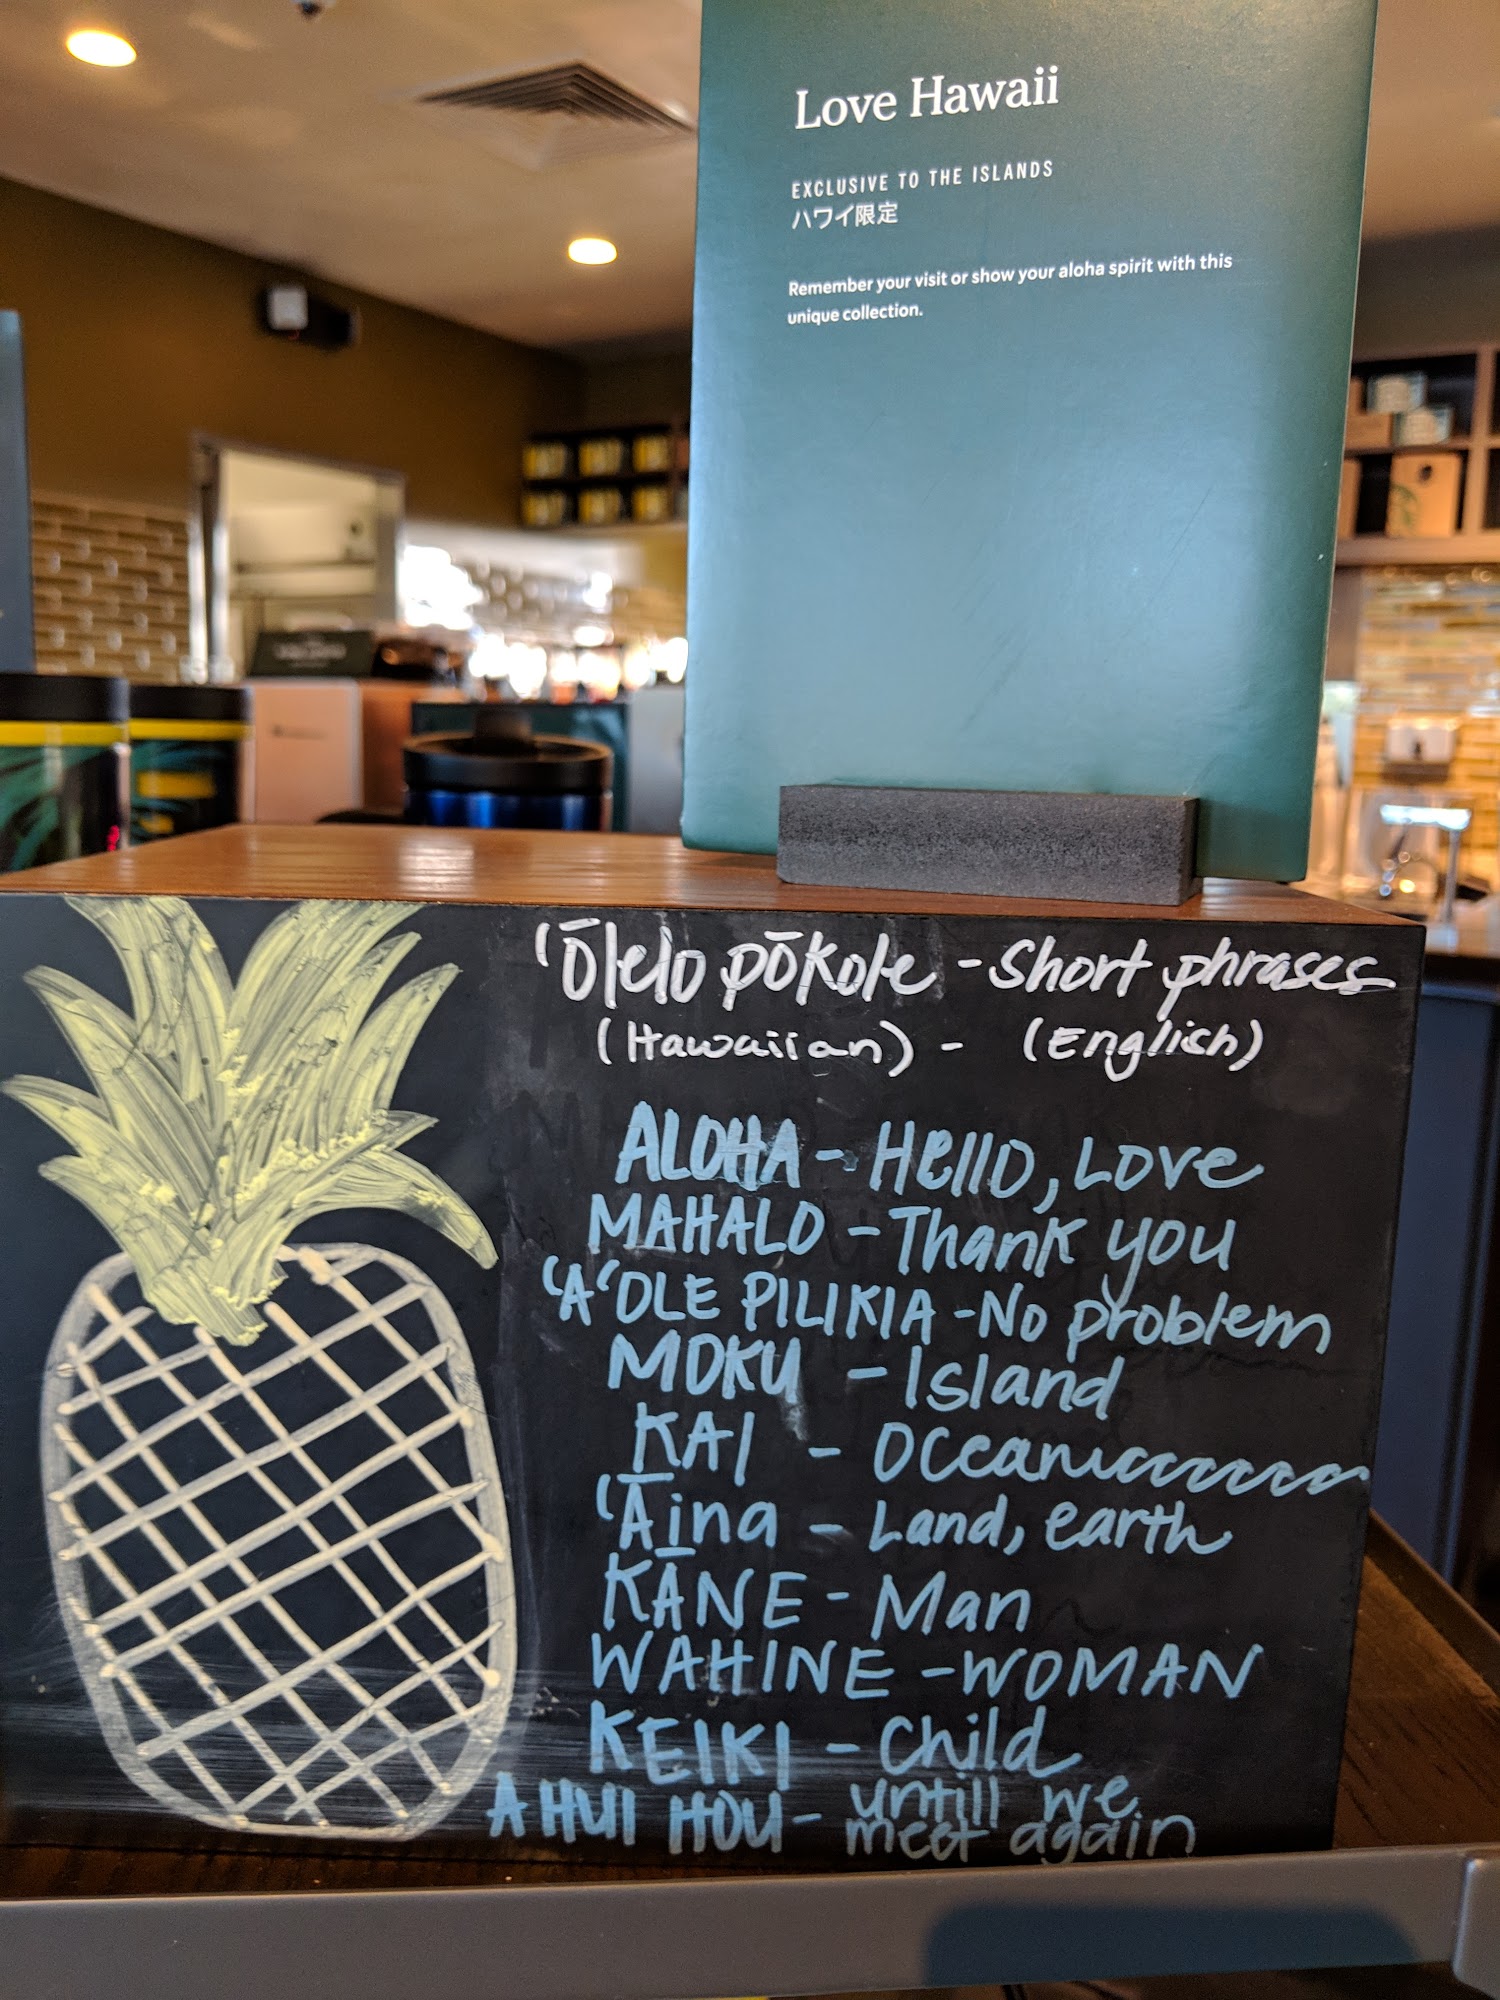 Love Hawaii
EXCLUSIVE TO THE ISLANDS
ハワイ限定
Remember your visit or show your aloha spirit with this
unique collection.
ʻŌlelo pōkole - Short phrases
(Hawaiian) - (English)
ALOHA - Hello, Love
MAHALO - Thank you
ʻAʻOLE PILIKIA - No problem
MOKU - Island
KAI - Ocean
ʻĀina - Land, earth
KĀNE - Man
WAHINE - WOMAN
KEIKI - Child
A HUI HOU - untill we
meet again